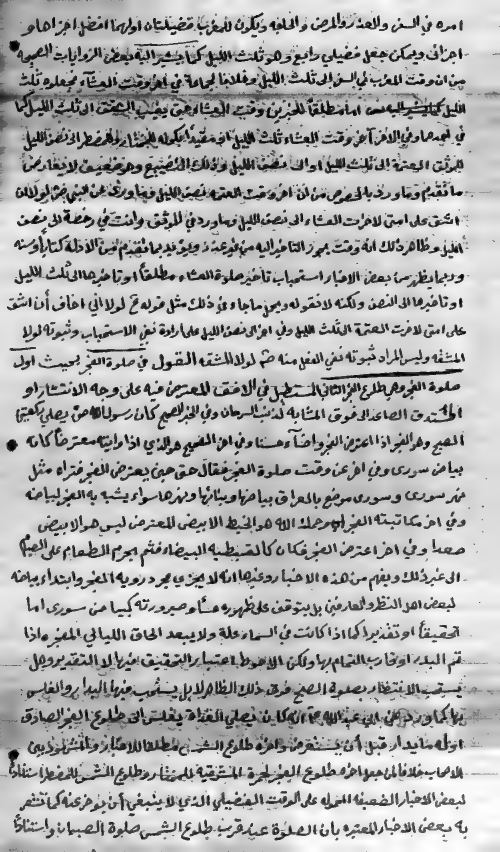 امره في السفر والعذر والمرض والحاجة ويكون للمغرب فضيلتان اولهما افضل اجزاها و
اجزائى ويمكن جعل فضيلى رابع وهو ثلث الليل كما يشير اليه بعض الروايات الصحيحة
من ان وقت المغرب في السفر الى ثلث الليل وخلافا لجماعة في اخر وقت العشاء بجعله ثلث
الليل مطلقا للخبرين وقت العشاء حين يغيب الشفق الى ثلث الليل كما
في احدهما وفي الاخر آخر وقت العشاء ثلث الليل والمضطر الى نصف الليل
للموثق العتمة الى ثلث الليل او الى نصف الليل وذلك التضييع وهو ضعيف لا يعارض
ما تقدم وما ورد بالخصوص من ان اخر وقت العتمة نصف الليل وما ورد عن النبي لولا ان
اشق على امتى لاخرت العشاء الى نصف الليل وما ورد في الموثق وانت في رخصة الى نصف
الليل وظاهر ذلك انه وقت يجوز التاخير اليه من غير عذر ويؤيد بما تقدم من الادلة كتابا وسنة
وربما يظهر من بعض الاخبار استحباب تأخير صلوة العشاء مطلقا او تاخيرها الى ثلث الليل
او تاخيرها الى النصف ولكنه لا نقول به ويحمل ما جاء في ذلك مثل قوله لولا انى اخاف أن اشق
على امتى لاخرت العتمة الى ثلث الليل وفي اخر الى نصف الليل على ارادة نفي الاستحباب وثبوته لولا
المشقة وليس المراد ثبوته نفي الفعل منه لولا المشقة القول في صلوة الفجر بحيث اول
صلوة الفجر وهى طلوع الفجر الثانى المستطيل في الافق المعترض فيه على وجه الانتشار او
الصاعد الى فوق المشابه لذنب السرحان وفي الخبر الصحيح كان رسول الله يصلى ركعتى
الصبح وهو الفجر اذا اعترض الفجر واضاء حسنا وفي اخر الصبح هو الذي اذا رايته معترضا كانه
بياض سورى وفي اخر عن وقت صلوة الفجر فقال حتى حين يعترض الفجر فتراه مثل
نهر سورى و سورى موضع بالعراق بياضها وبنائها ونهرها سواء يشبه به الفجر لبياضه
وفي اخر مكاتبته الفجر يرحمك الله هو الخيط الابيض المعترض ليس هو الابيض
صعدا وفي اخر اعترض الفجر فكان كالقبطية البيضاء فثم يحرم الطعام على الصائم
الى غير ذلك ويفهم من هذه الاخبار وغيرها انه لا يجزي مجرد رؤية الفجر وابتداء بياضه
لبعض اهل النظر والعارفين بل يتوقف على ظهوره حسنا وصيرورته قريبا من سورى اما
تحقيقا او تقديرا كما اذا كانت في السماء علة ولا يبعد الحاق الليالي المقمرة اذا
تم البدر او قارب التمام بها ولكن الاحوط اعتبار التحقيق فيها لا التقدير وهل
يستحب الانتظار بصلوة الصبح فوق ذلك الظاهر لا بل يستحب فيها البدار والغلس
بها كما ورد عن ابى عبد الله انه كان يصلي الغداة بغلس الى طلوع الفجر الصادق
اول ما يبدو قبل أن يستعرض واخره طلوع الشمس مطلقا للاخبار والمشهور بين
الاصحاب خلافا لمن جعل اخره طلوع الحمرة المشرقية للمختار وطلوع الشمس للمضطر استنادا
لبعض الاخبار الضعيفة المحمولة على الوقت الفضيلي الذي لا ينبغي أن يؤخر عنه كما تشعر
به بعض الاخبار المعتبرة بان الصلوة عند قرب طلوع الشمس صلوة الصبيان واستنادا